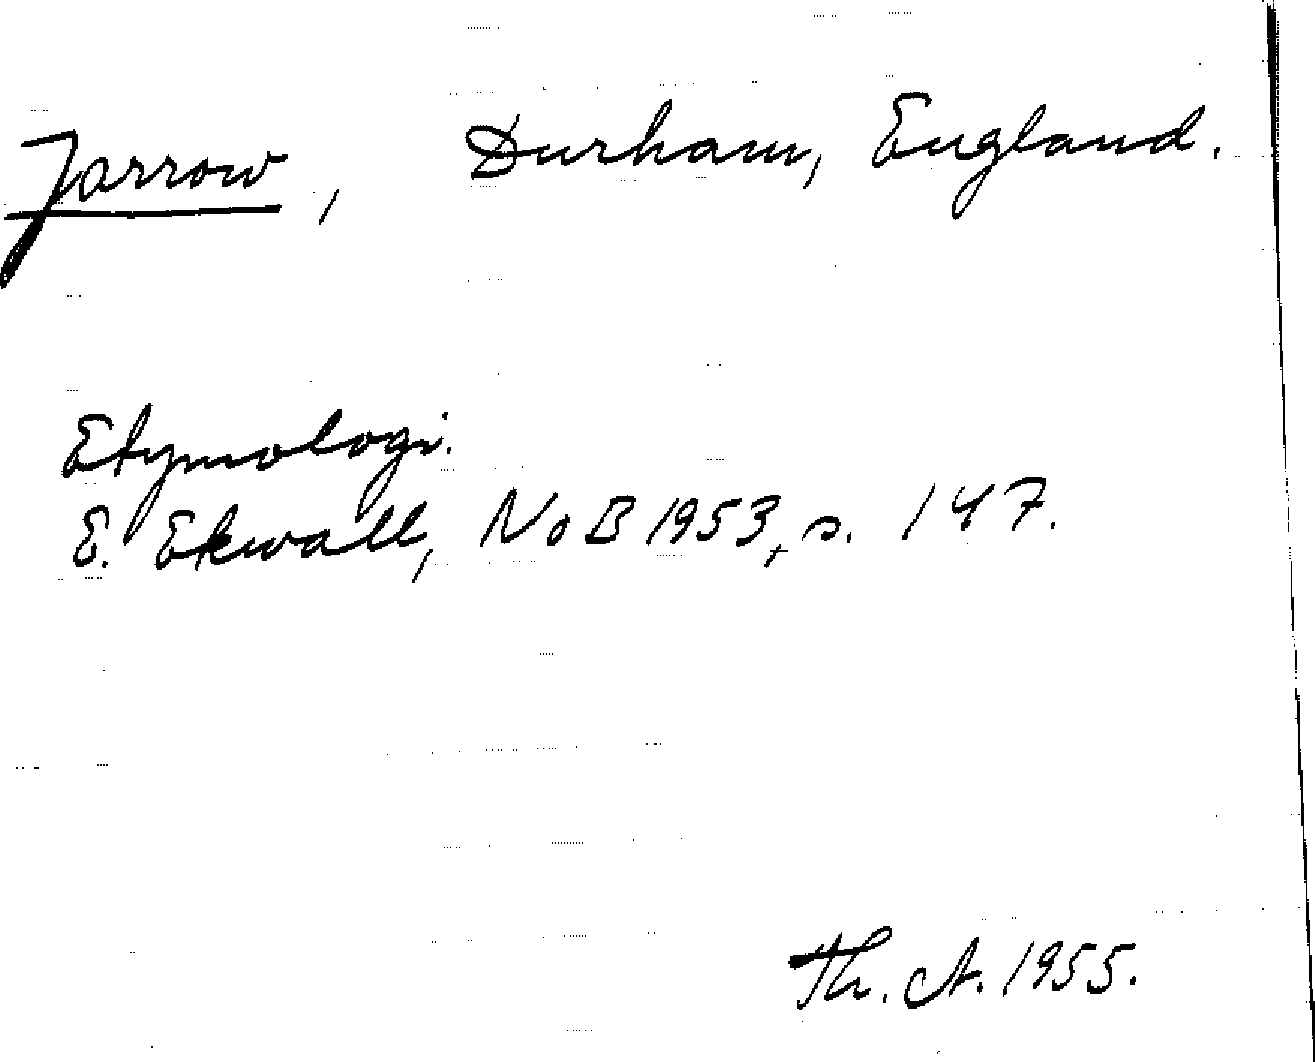 Jarrow, Durham, England.
Etymologi.
E. Ekwall, NoB 1953, s. 147.
Th. A. 1955.